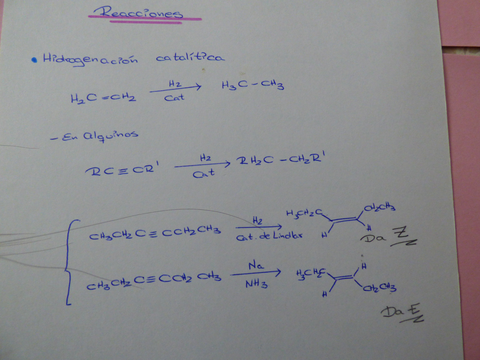 Reacciones
• Hidrogenación catalítica
H2C = CH2 H2 Cat H3C - CH3
- En Alquinos
RC ≡ CR' H2 Cat RH2C - CH2R'
CH3CH2C ≡ CCH2CH3 H2 Cat. de Lindlar H3CH2C H H CH2CH3 Da Z
CH3CH2C ≡ CCH2CH3 Na NH3 H3CH2C H H CH2CH3 Da E